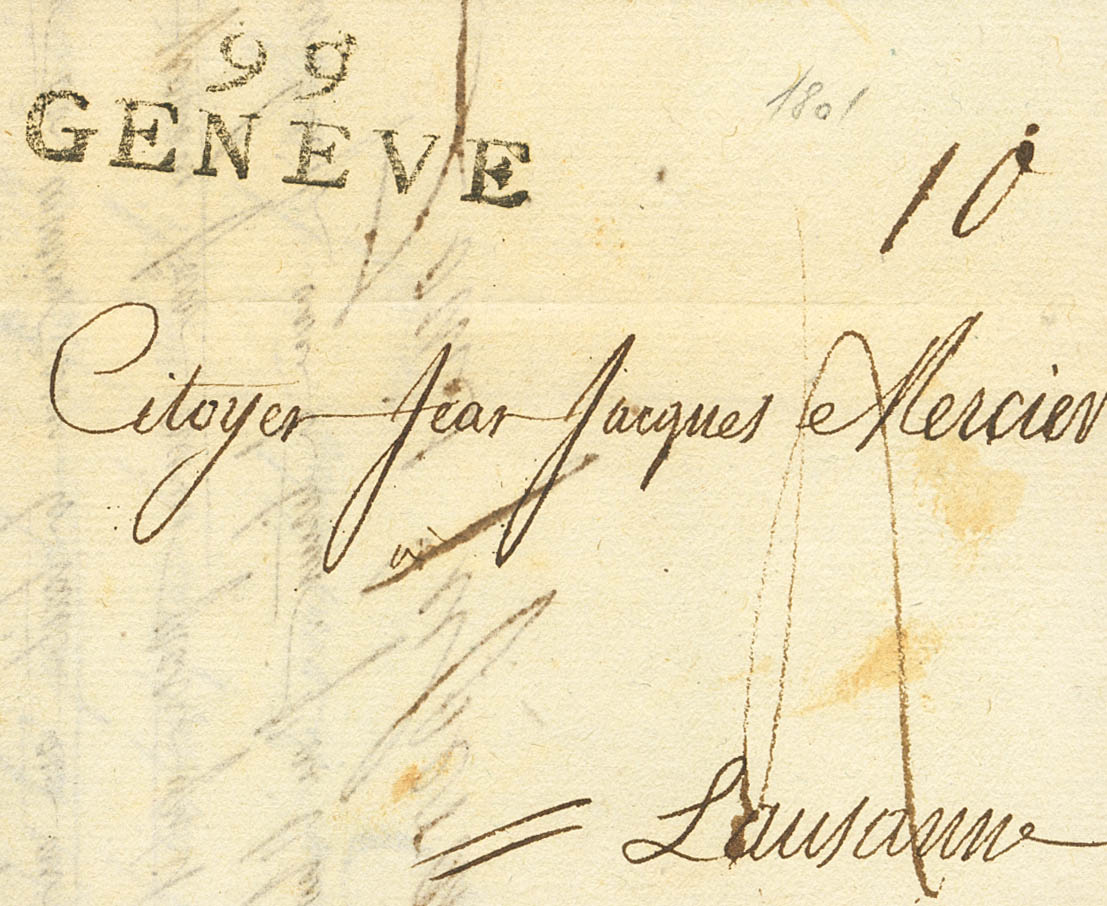 99
GENEVE
1801
10
Citoyen Jean Jacques Mercier
à
Lausanne